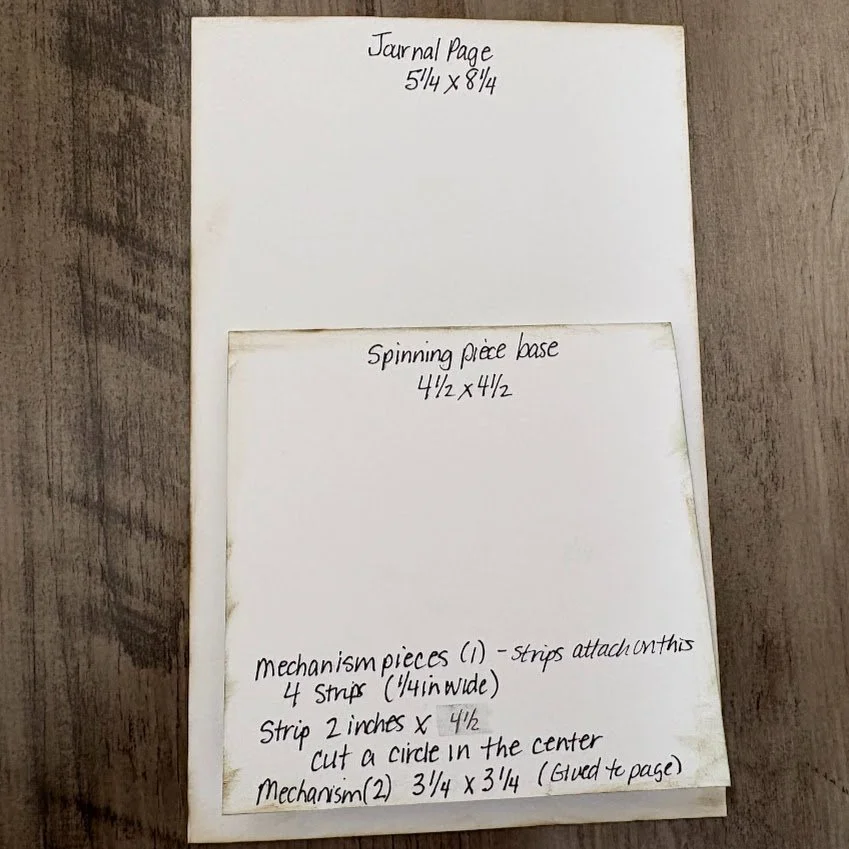 Journal Page
5 1/4 x 8 1/4
Spinning piece base
4 1/2 x 4 1/2
Mechanism pieces (1) - strips attach on this
4 strips (1/4 in wide)
Strip 2 inches x 4 1/2
cut a circle in the center
Mechanism (2) 3 1/4 x 3 1/4 (Glued to page)